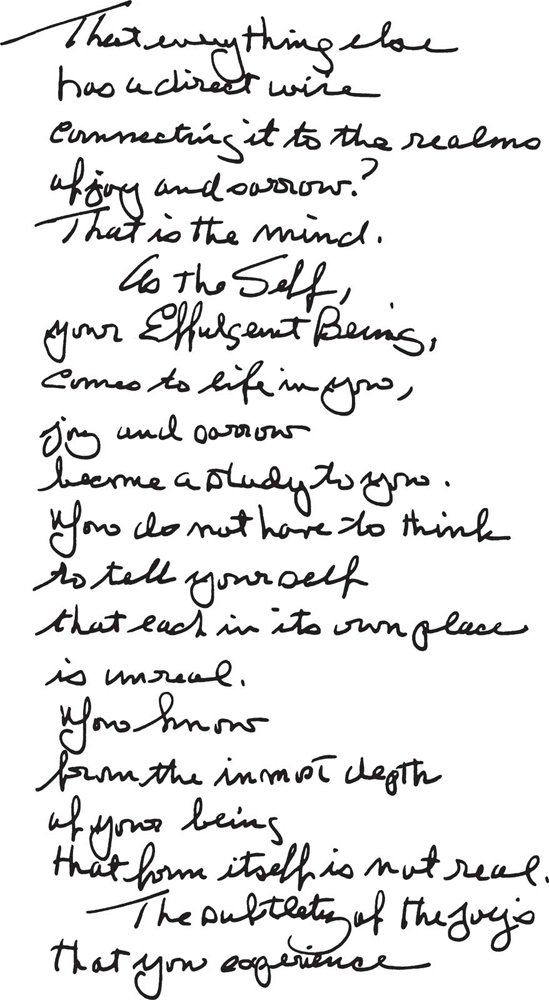 That everything else
has a direct wire
connecting it to the realms
of joy and sorrow?
That is the mind.
As the Self,
your Effulgent Being,
comes to life in you,
joy and sorrow
become a study to you.
You do not have to think
to tell yourself
that each in its own place
is unreal.
You know
from the inmost depth
of your being
that form itself is not real.
The subtlety of the joys
that you experience